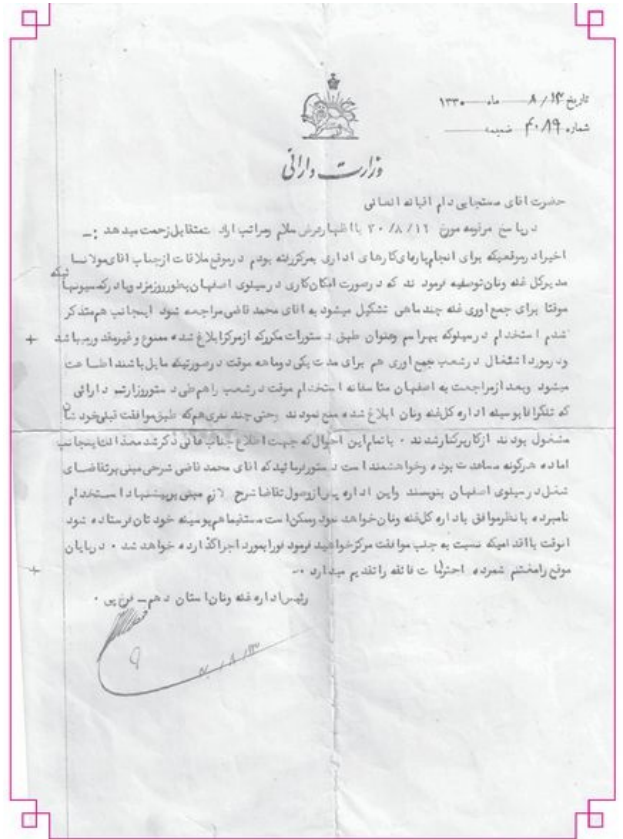 تاریخ ۸/۱۳ ماه ۱۳۳۰
شماره ۴۰۸۹ ضمیمه
وزارت دارائی
حضرت آقای مستجابی دام اقباله العالی
در پاسخ مرقومه مورخ ۳۰/۸/۱۲ با اظهار عرض سلام و مراتب ارادت متقابل زحمت میدهد :ـ
اخیرا در موقعیکه برای انجام پاره‌ای کارهای اداری بمرکز رفته بودم در موقع ملاقات از جناب آقای مولانا
مدیر کل غله ونان توصیه فرمودند که در صورت امکان کاری در سیلوی اصفهان بطور روزمزد و یا در کمیسیونهائیکه
موقتا برای جمع آوری غله چند ماهی تشکیل میشود به آقای محمد قاضی مراجعه شود اینجانب هم متذکر
شدم استخدام در سیلو که بهر اسم و عنوان طبق دستورات مکرر که از مرکز ابلاغ شده ممنوع و غیر مقدور میباشد
و در مورد اشتغال در شعب جمع آوری هم برای مدت یکی دو ماهه موقت در صورتیکه مایل باشند اطاعت
میشود وبعد از مراجعت به اصفهان متاسفانه استخدام موقت در شعب را هم طی دستور وزارتی دارائی
که تلگرافا بوسیله اداره کل غله ونان ابلاغ شده منع نمودند وحتی چند نفری هم که طبق موافقت قبلی خودشان
مشغول بودند از کار برکنار شدند ۰ با تمام این احوال که جهت اطلاع جناب عالی ذکر شد معذالک اینجانب
آماده هرگونه مساعدت بوده وخواهشمند است دستور فرمائید که آقای محمد قاضی شرحی مبنی بر تقاضای
شغل در سیلوی اصفهان بنویسند واین اداره پس از وصول تقاضا شرح لازم مبنی بر پیشنهاد استخدام
نامبرده با نظر موافق باداره کل غله ونان خواهد نمود وممکن است مستقیما هم بوسیله خودتان فرستاده شود
آنوقت با اقدامیکه نسبت به جلب موافقت مرکز خواهید فرمود فورا بمورد اجرا گذارده خواهد شد ۰ در پایان
موقع را مغتنم شمرده احترامات فائقه را تقدیم میدارد ۰ـ
رئیس اداره غله ونان استان دهم ـ